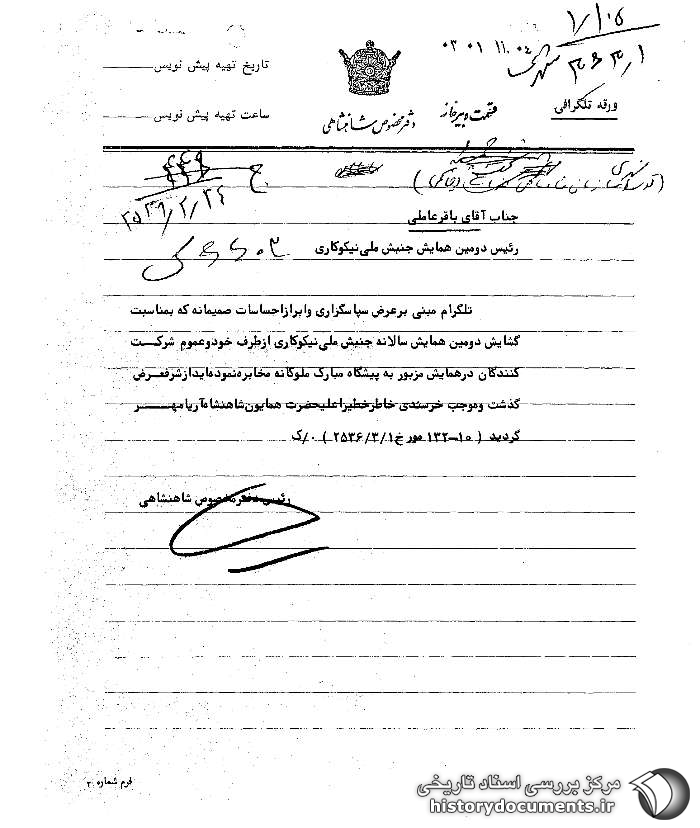 ۱/۱۰۵
۰۳ ۰۱ ۱۱.۰۴
ورقه تلگرافی
قسمت دبیرخانه
دفتر مخصوص شاهنشاهی
تاریخ تهیه پیش نویس
ساعت تهیه پیش نویس
جناب آقای باقر عاملی
رئیس دومین همایش جنبش ملی نیکوکاری
تلگرام مبنی بر عرض سپاسگزاری و ابراز احساسات صمیمانه که بمناسبت
گشایش دومین همایش سالانه جنبش ملی نیکوکاری از طرف خود و عموم شرکت
کنندگان در همایش مزبور به پیشگاه مبارک ملوکانه مخابره نموده اید از شرف عرض
گذشت و موجب خرسندی خاطر خطیر اعلیحضرت همایون شاهنشاه آریا مهر
گردید ( ۱۰-۱۳۲ مورخ ۲۵۳۶/۳/۱ ) ۰/ک
رئیس دفتر مخصوص شاهنشاهی
فرم شماره ۲۰
مرکز بررسی اسناد تاریخی
historydocuments.ir